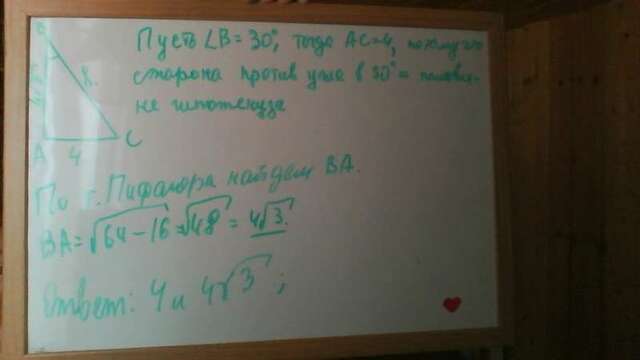 Пусть ∠B = 30°, тогда AC=4, потому что
сторона против угла в 30° = половине
гипотенузе
A
4
C
По т. Пифагора найдем BA.
BA=√64-16=√48 = 4√3.
Ответ: 4 и 4√3;